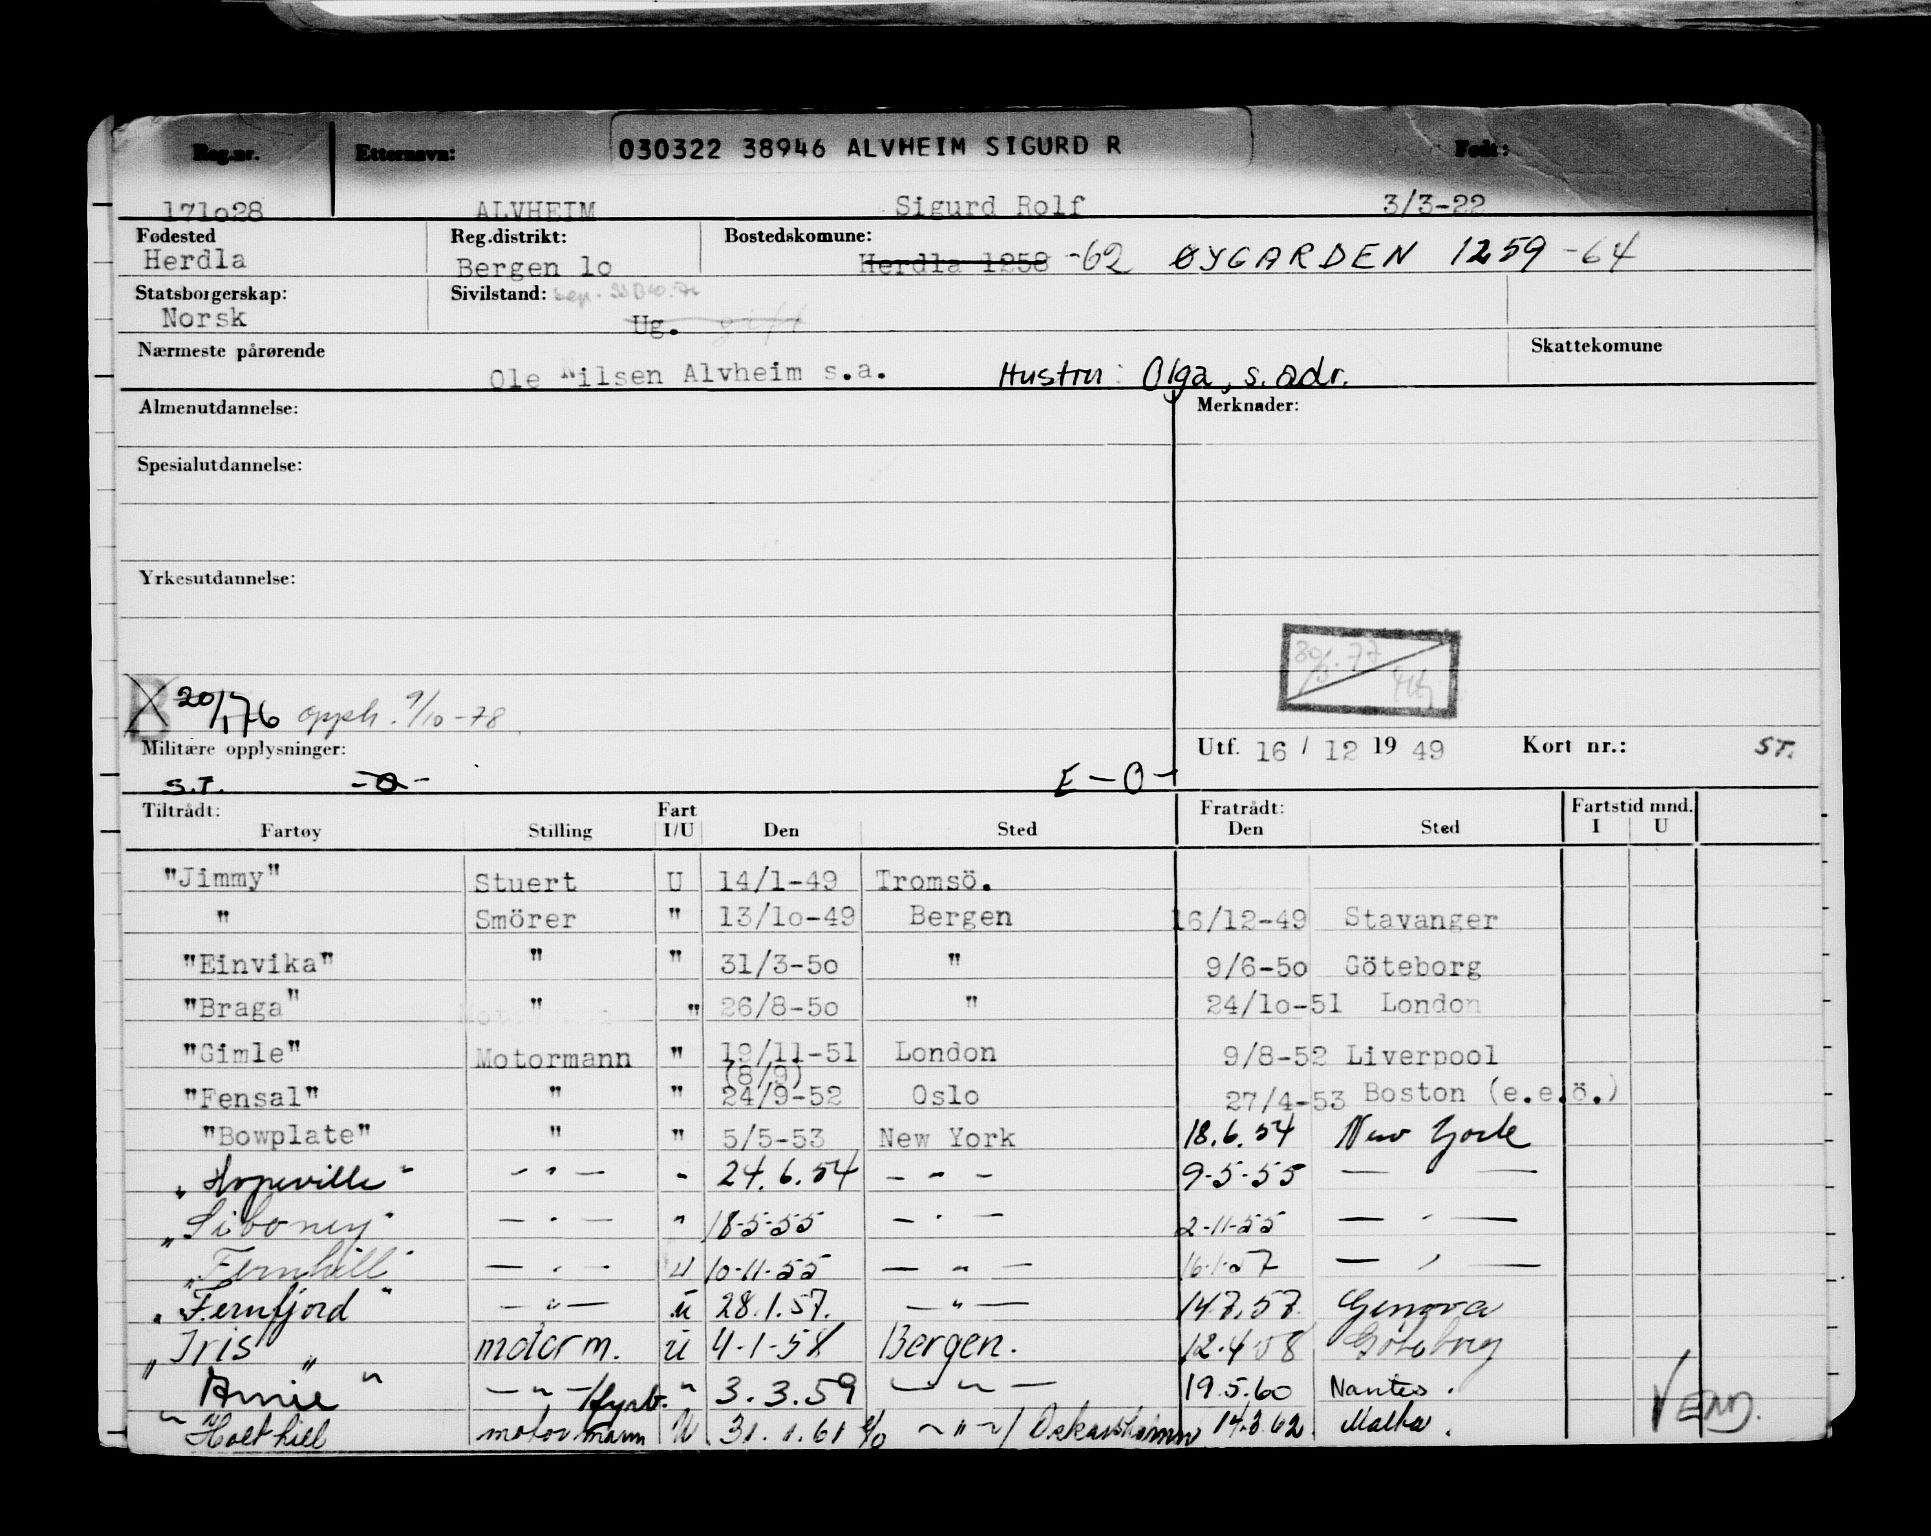 Reg.nr. Etternavn: 030322 38946 ALVHEIM SIGURD R Født:
171o28 ALVHEIM Sigurd Rolf 3/3-22
Fødested Reg.distrikt: Bostedskomune:
Herdla Bergen 1o Herdla 1258 -62 ØYGARDEN 1259 -64
Statsborgerskap: Sivilstand:
Norsk Ug. gift
Nærmeste pårørende Skattekomune
Ole Nilsen Alvheim s.a. Hustru: Olga, s. adr.
Almenutdannelse: Merknader:
Spesialutdannelse:
Yrkesutdannelse:
B 20/1 76 opph. 9/10-78
Militære opplysninger: Utf. 16 / 12 19 49 Kort nr.: ST.
S.T. -0- E-0-
Tiltrådt: Fart Fratrådt: Fartstid mnd.
Fartøy Stilling I/U Den Sted Den Sted I U
"Jimmy" Stuert U 14/1-49 Tromsö.
" Smörer " 13/1o-49 Bergen 16/12-49 Stavanger
"Einvika" " " 31/3-5o " 9/6-5o Göteborg
"Braga" " " 26/8-5o " 24/1o-51 London
"Gimle" Motormann " 19/11-51 London 9/8-52 Liverpool
(8/9)
"Fensal" " " 24/9-52 Oslo 27/4-53 Boston (e.e.ö.)
"Bowplate" " " 5/5-53 New York 18.6.54 New York
"Hopeville" - " - " 24.6.54 - " - 9-5-55 — —
"Siboney" - " - " 18-5-55 - " - 2-11-55 - " -
"Fernhill" - " - U 10-11-55 - " - 16-1-57 - " -
"Fernfjord" - " - U 28.1.57. - " - 14.7.57 Genova
"Iris" motorm. U 4-1-58 Bergen. 12.4 58 Göteborg
"Annie" - " -/fyrb. " 3.3.59 - " - 19.5.60 Nantes.
"Holthill motormann U 31.1.61 - " -/ Oskarshamn 14.3.62 Malta. VEND.